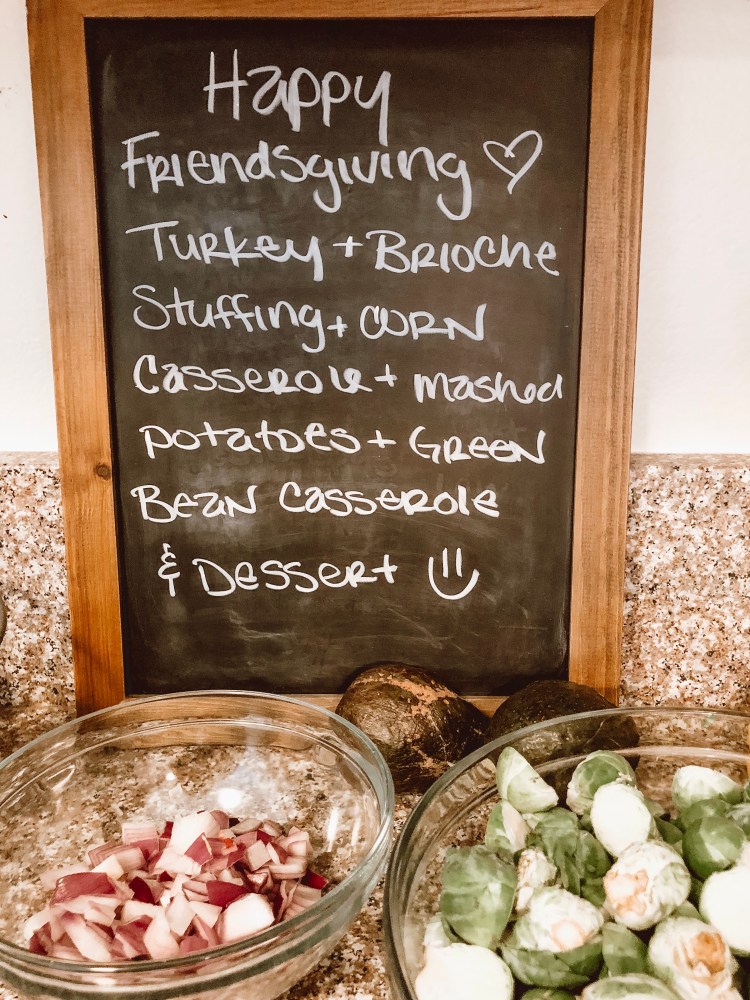 Happy
Friendsgiving ♡
Turkey + Brioche
Stuffing + CORN
Casserole + mashed
potatoes + GREEN
Bean Casserole
& Dessert